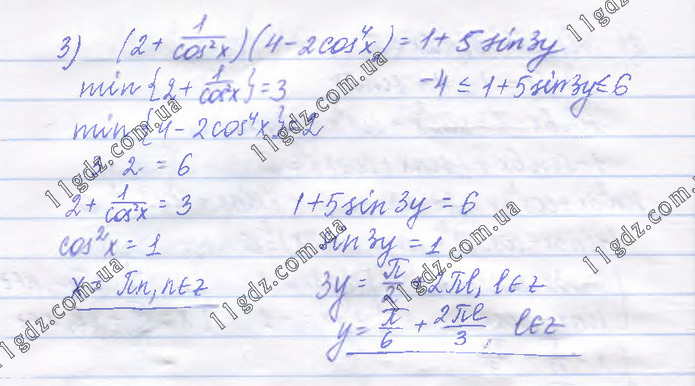 3) (2 + 1/cos²x)(4 - 2cos⁴x) = 1 + 5 sin3y
min{2 + 1/cos²x} = 3 -4 ≤ 1 + 5sin3y ≤ 6
min{4 - 2cos⁴x} = 2
3 · 2 = 6
2 + 1/cos²x = 3 1 + 5sin3y = 6
cos²x = 1 sin3y = 1
x = πn, n∈z 3y = π/2 + 2πl, l∈z
y = π/6 + 2πl/3, l∈z
11gdz.com.ua
11gdz.com.ua
11gdz.com.ua
11gdz.com.ua
11gdz.com.ua
11gdz.com.ua
11gdz.com.ua